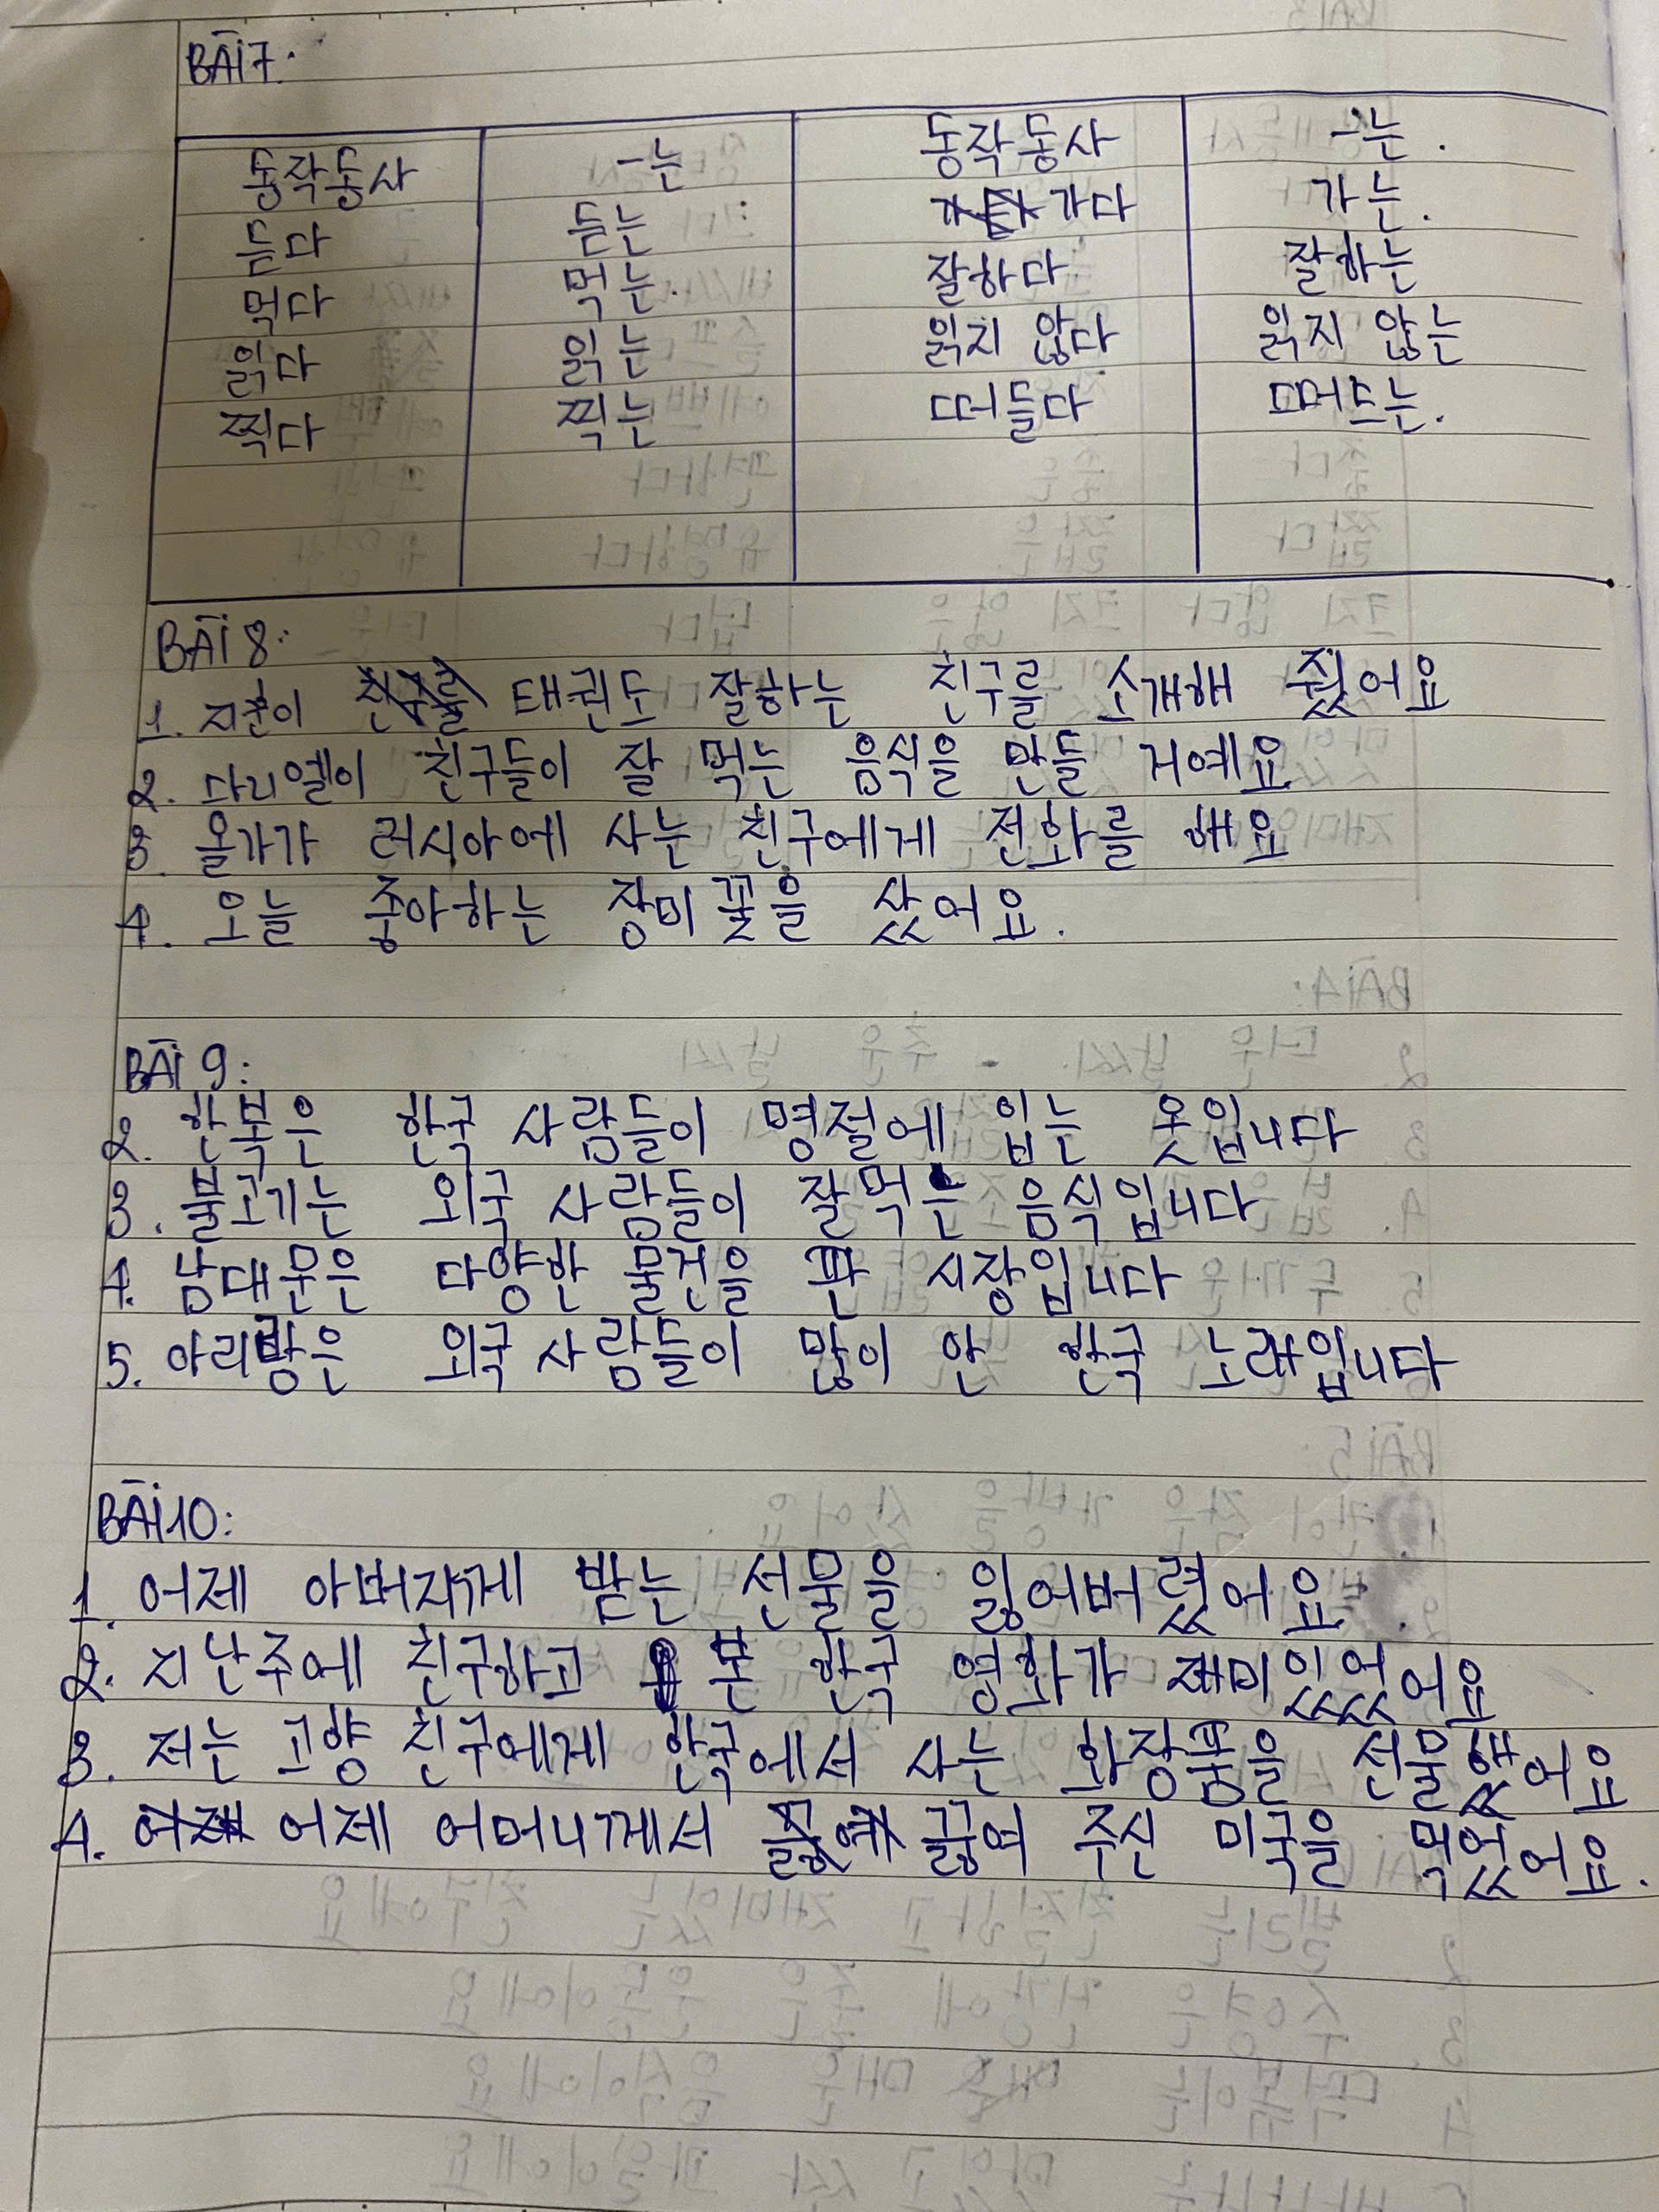 BÀI 7:
동작동사 -는 동작동사 -는.
듣다 듣는 가다 가는.
먹다 먹는. 잘하다 잘하는
읽다 읽는 읽지 않다 읽지 않는
찍다 찍는 떠들다 떠드는.
BÀI 8:
1. 지훈이 태권도 잘하는 친구를 소개해 줬어요
2. 다니엘이 친구들이 잘 먹는 음식을 만들 거예요
3. 올가가 러시아에 사는 친구에게 전화를 해요
4. 오늘 좋아하는 장미꽃을 샀어요.
BÀI 9:
2. 한복은 한국 사람들이 명절에 입는 옷입니다
3. 불고기는 외국 사람들이 잘먹는 음식입니다
4. 남대문은 다양한 물건을 판 시장입니다
5. 아리랑은 외국 사람들이 많이 안 한국 노래입니다
BÀI 10:
1. 어제 아버지께 받는 선물을 잃어버렸어요.
2. 지난주에 친구하고 본 한국 영화가 재미있었어요
3. 저는 고향 친구에게 한국에서 사는 화장품을 선물했어요
4. 어제 어머니께서 끓여 주신 미국을 먹었어요.